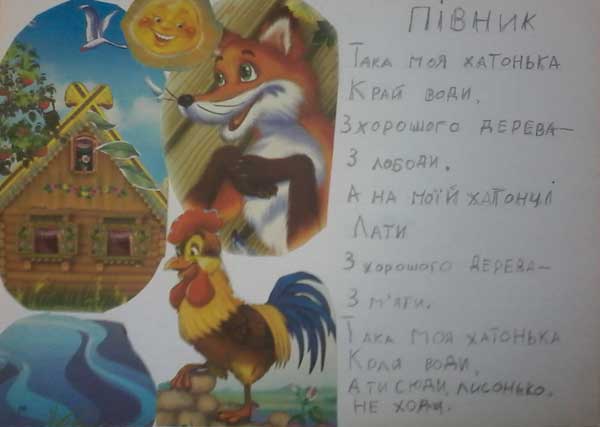 ПІВНИК
ТАКА МОЯ ХАТОНЬКА
КРАЙ ВОДИ,
З ХОРОШОГО ДЕРЕВА—
З ЛОБОДИ.
А НА МОЇЙ ХАТОНЦІ
ЛАТИ
З ХОРОШОГО ДЕРЕВА—
З М'ЯТИ.
ТАКА МОЯ ХАТОНЬКА
КОЛЯ ВОДИ,
А ТИ СЮДИ, ЛИСОНЬКО,
НЕ ХОДИ.